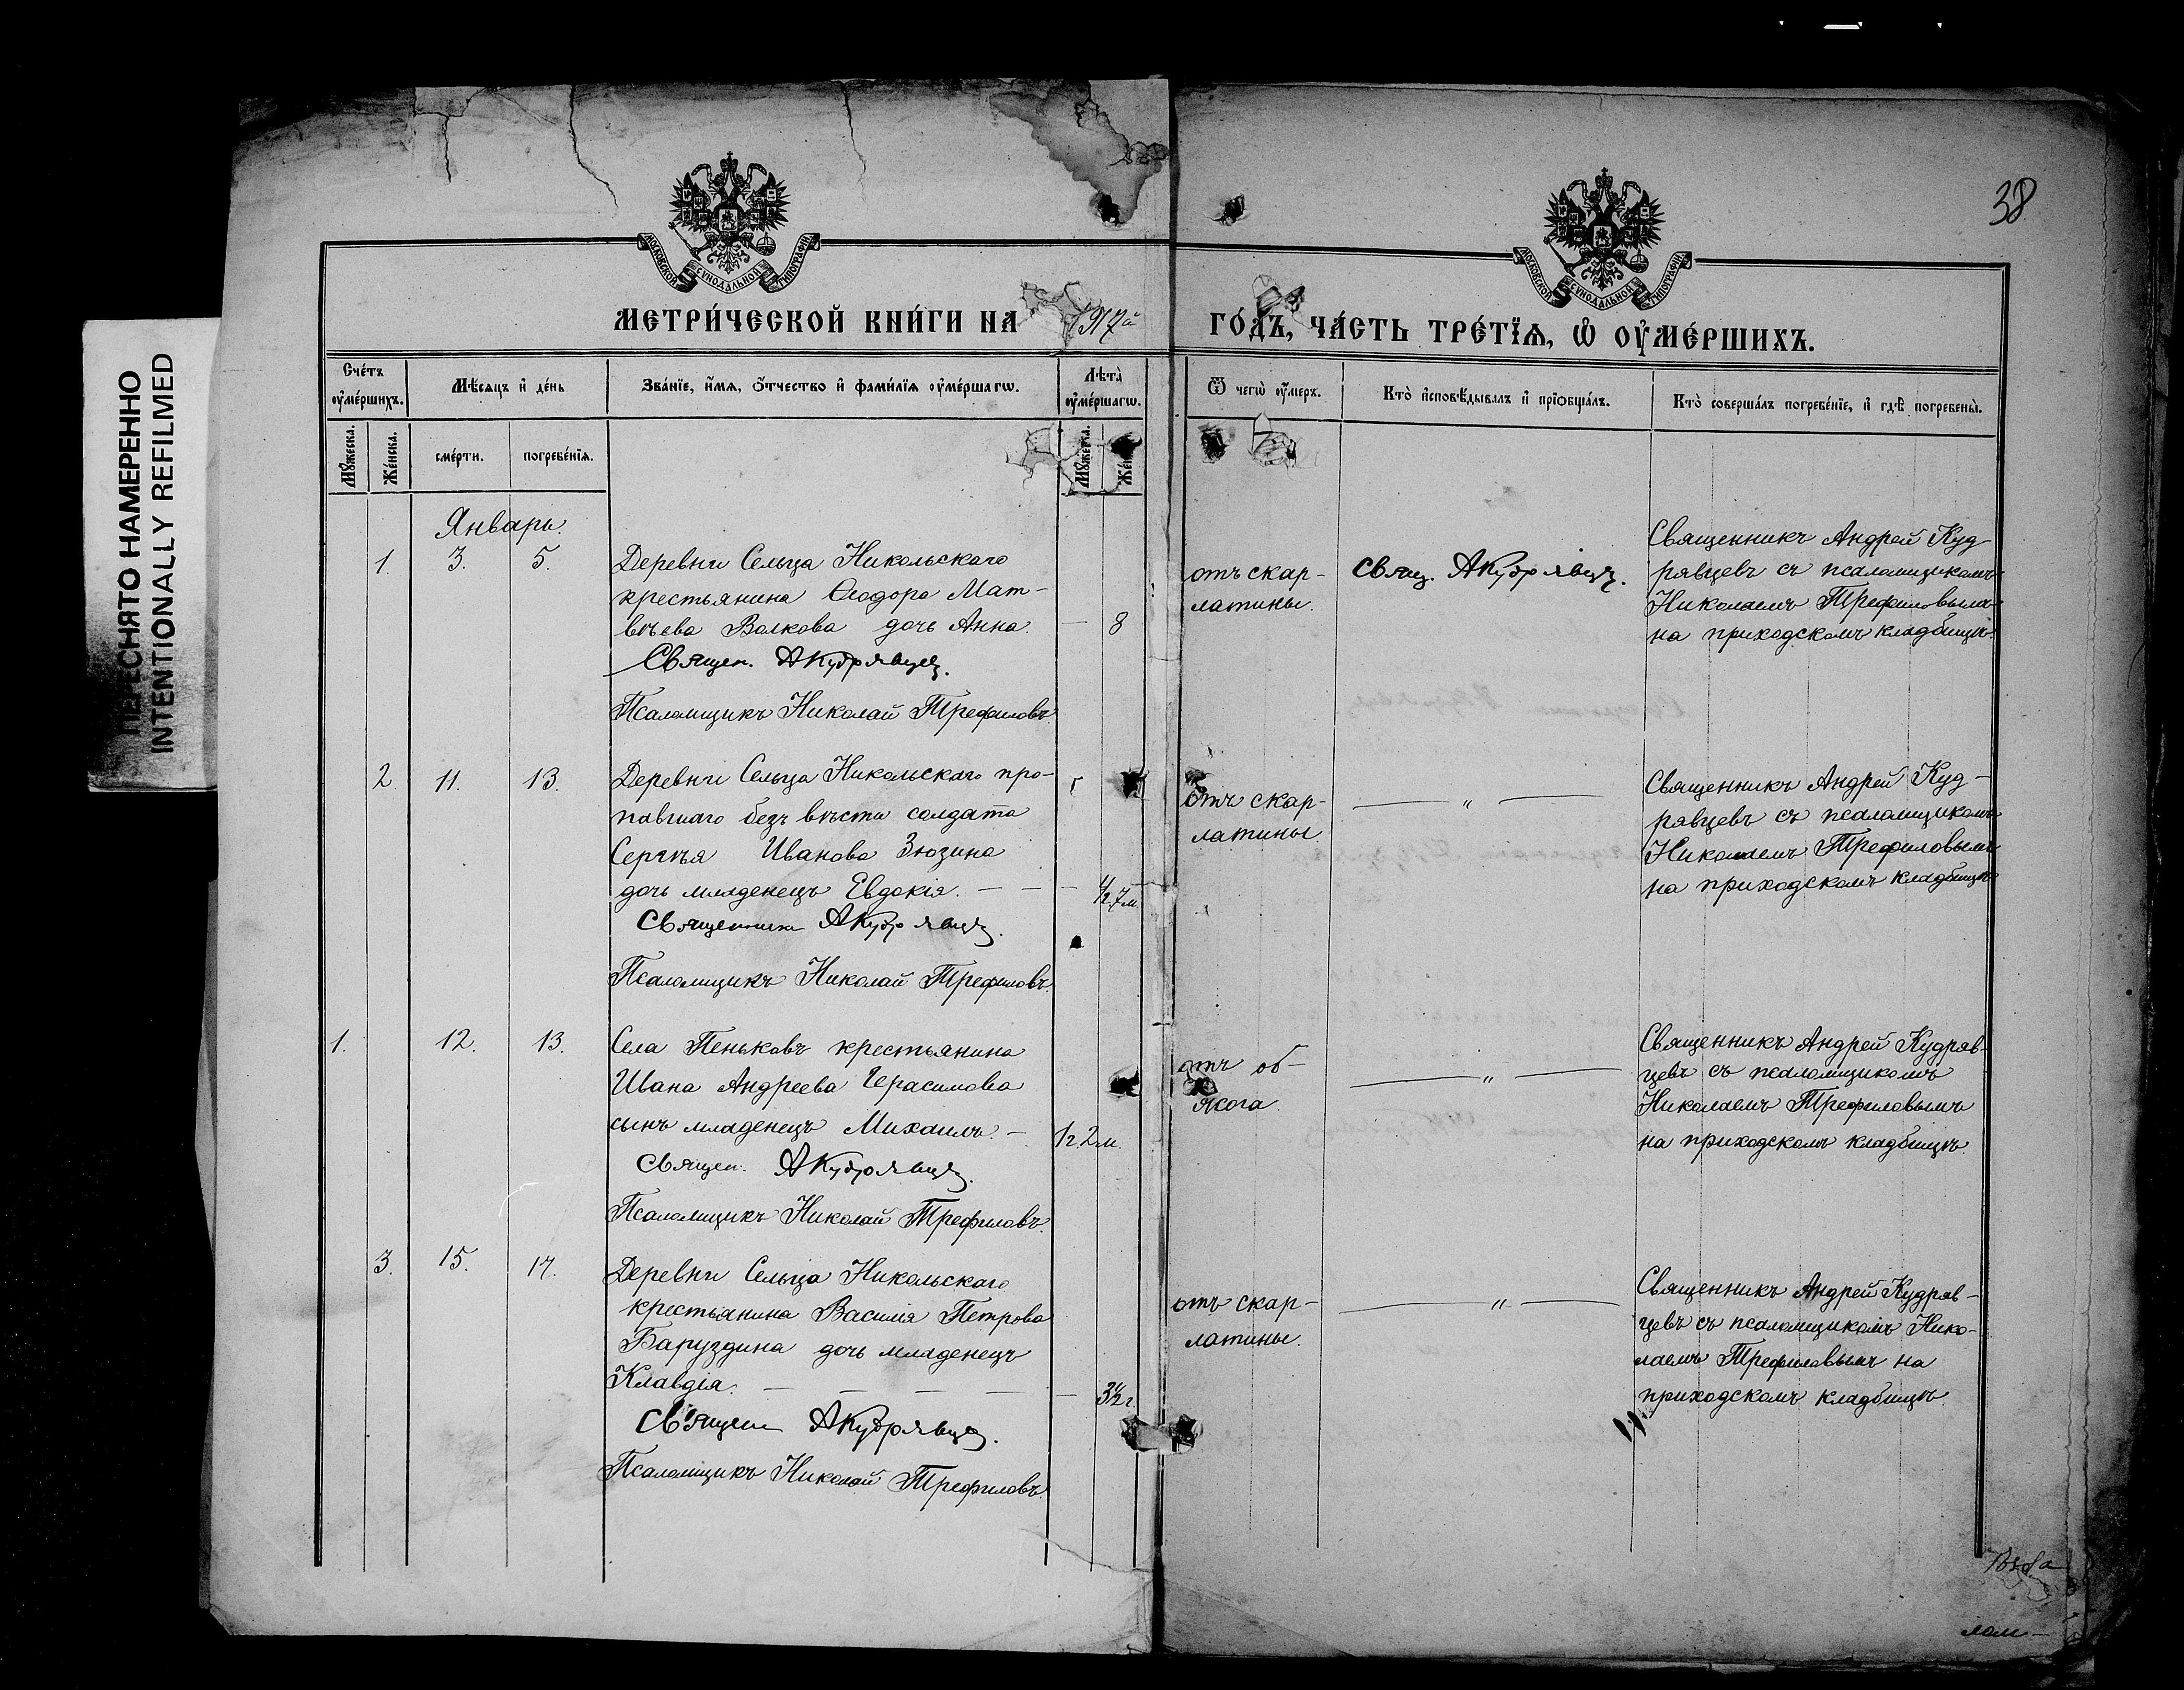 38
ПЕРЕСНЯТО НАМЕРЕННО
INTENTIONALLY REFILMED
МОСКОВСКОЙ СѴНОДАЛЬНОЙ ТИПОГРАФІИ
МОСКОВСКОЙ СѴНОДАЛЬНОЙ ТИПОГРАФІИ
МЕТРИ́ЧЕСКОЙ КНИ́ГИ НА 1917й
ГО́ДЪ, ЧА́СТЬ ТРЕ́ТЇѦ, Ѡ҆ ОУ҆МЕ́РШИХЪ.
Сче́тъ оу҆ме́ршихъ.
Мѣ́сяцъ и҆ де́нь
Зва́нїе, и҆́мѧ, ѻ҆́тчество и҆ фами́лїѧ оу҆ме́ршагѡ.
Лѣ́та оу҆ме́ршагѡ.
Ѿ чегѡ̀ оу҆́меръ.
Кто̀ и҆сповѣ́дывалъ и҆ прїѻбща́лъ.
Кто̀ соверша́лъ погребе́нїе, и҆ гдѣ̀ погребены̀.
Мꙋ́жеска.
Же́нска.
сме́рти.
погребе́нїѧ.
Мꙋ́жеска.
Январь.
1. 3. 5.
Деревни Сельца Никольскаго
крестьянина Ѳеодора Мат-
вѣева Волкова дочь Анна. — 8
Священ. АКудрявцевъ.
Псаломщикъ Николай Трефиловъ.
отъ скар-
латины.
Свящ. АКудрявцевъ.
Священникъ Андрей Куд-
рявцевъ съ псаломщикомъ
Николаемъ Трефиловымъ
на приходскомъ кладбищѣ.
2 11. 13.
Деревни Сельца Никольскаго про-
павшаго безъ вѣсти солдата
Сергѣя Иванова Зюзина
дочь младенецъ Евдокія. — — — 1/2 7м.
Священникъ АКудрявцевъ.
Псаломщикъ Николай Трефиловъ.
отъ скар-
латины.
— „ —
Священникъ Андрей Куд-
рявцевъ съ псаломщикомъ
Николаемъ Трефиловымъ
на приходскомъ кладбищѣ
1. 12. 13.
Села Пеньковъ крестьянина
Ивана Андреева Герасимова
сынъ младенецъ Михаилъ. — 1г. 2м.
Священ. АКудрявцевъ.
Псаломщикъ Николай Трефиловъ.
отъ об-
жога.
— „ —
Священникъ Андрей Кудряв-
цевъ съ псаломщикомъ
Николаемъ Трефиловымъ
на приходскомъ кладбищѣ.
3. 15. 17.
Деревни Сельца Никольскаго
крестьянина Василія Петрова
Баруздина дочь младенецъ
Клавдія. — — — — — 3 1/2 г.
Священ АКудрявцевъ.
Псаломщикъ Николай Трефиловъ.
отъ скар-
латины.
— „ —
Священникъ Андрей Кудряв-
цевъ съ псаломщикомъ Нико-
лаемъ Трефиловымъ на
приходскомъ кладбищѣ.
лом-